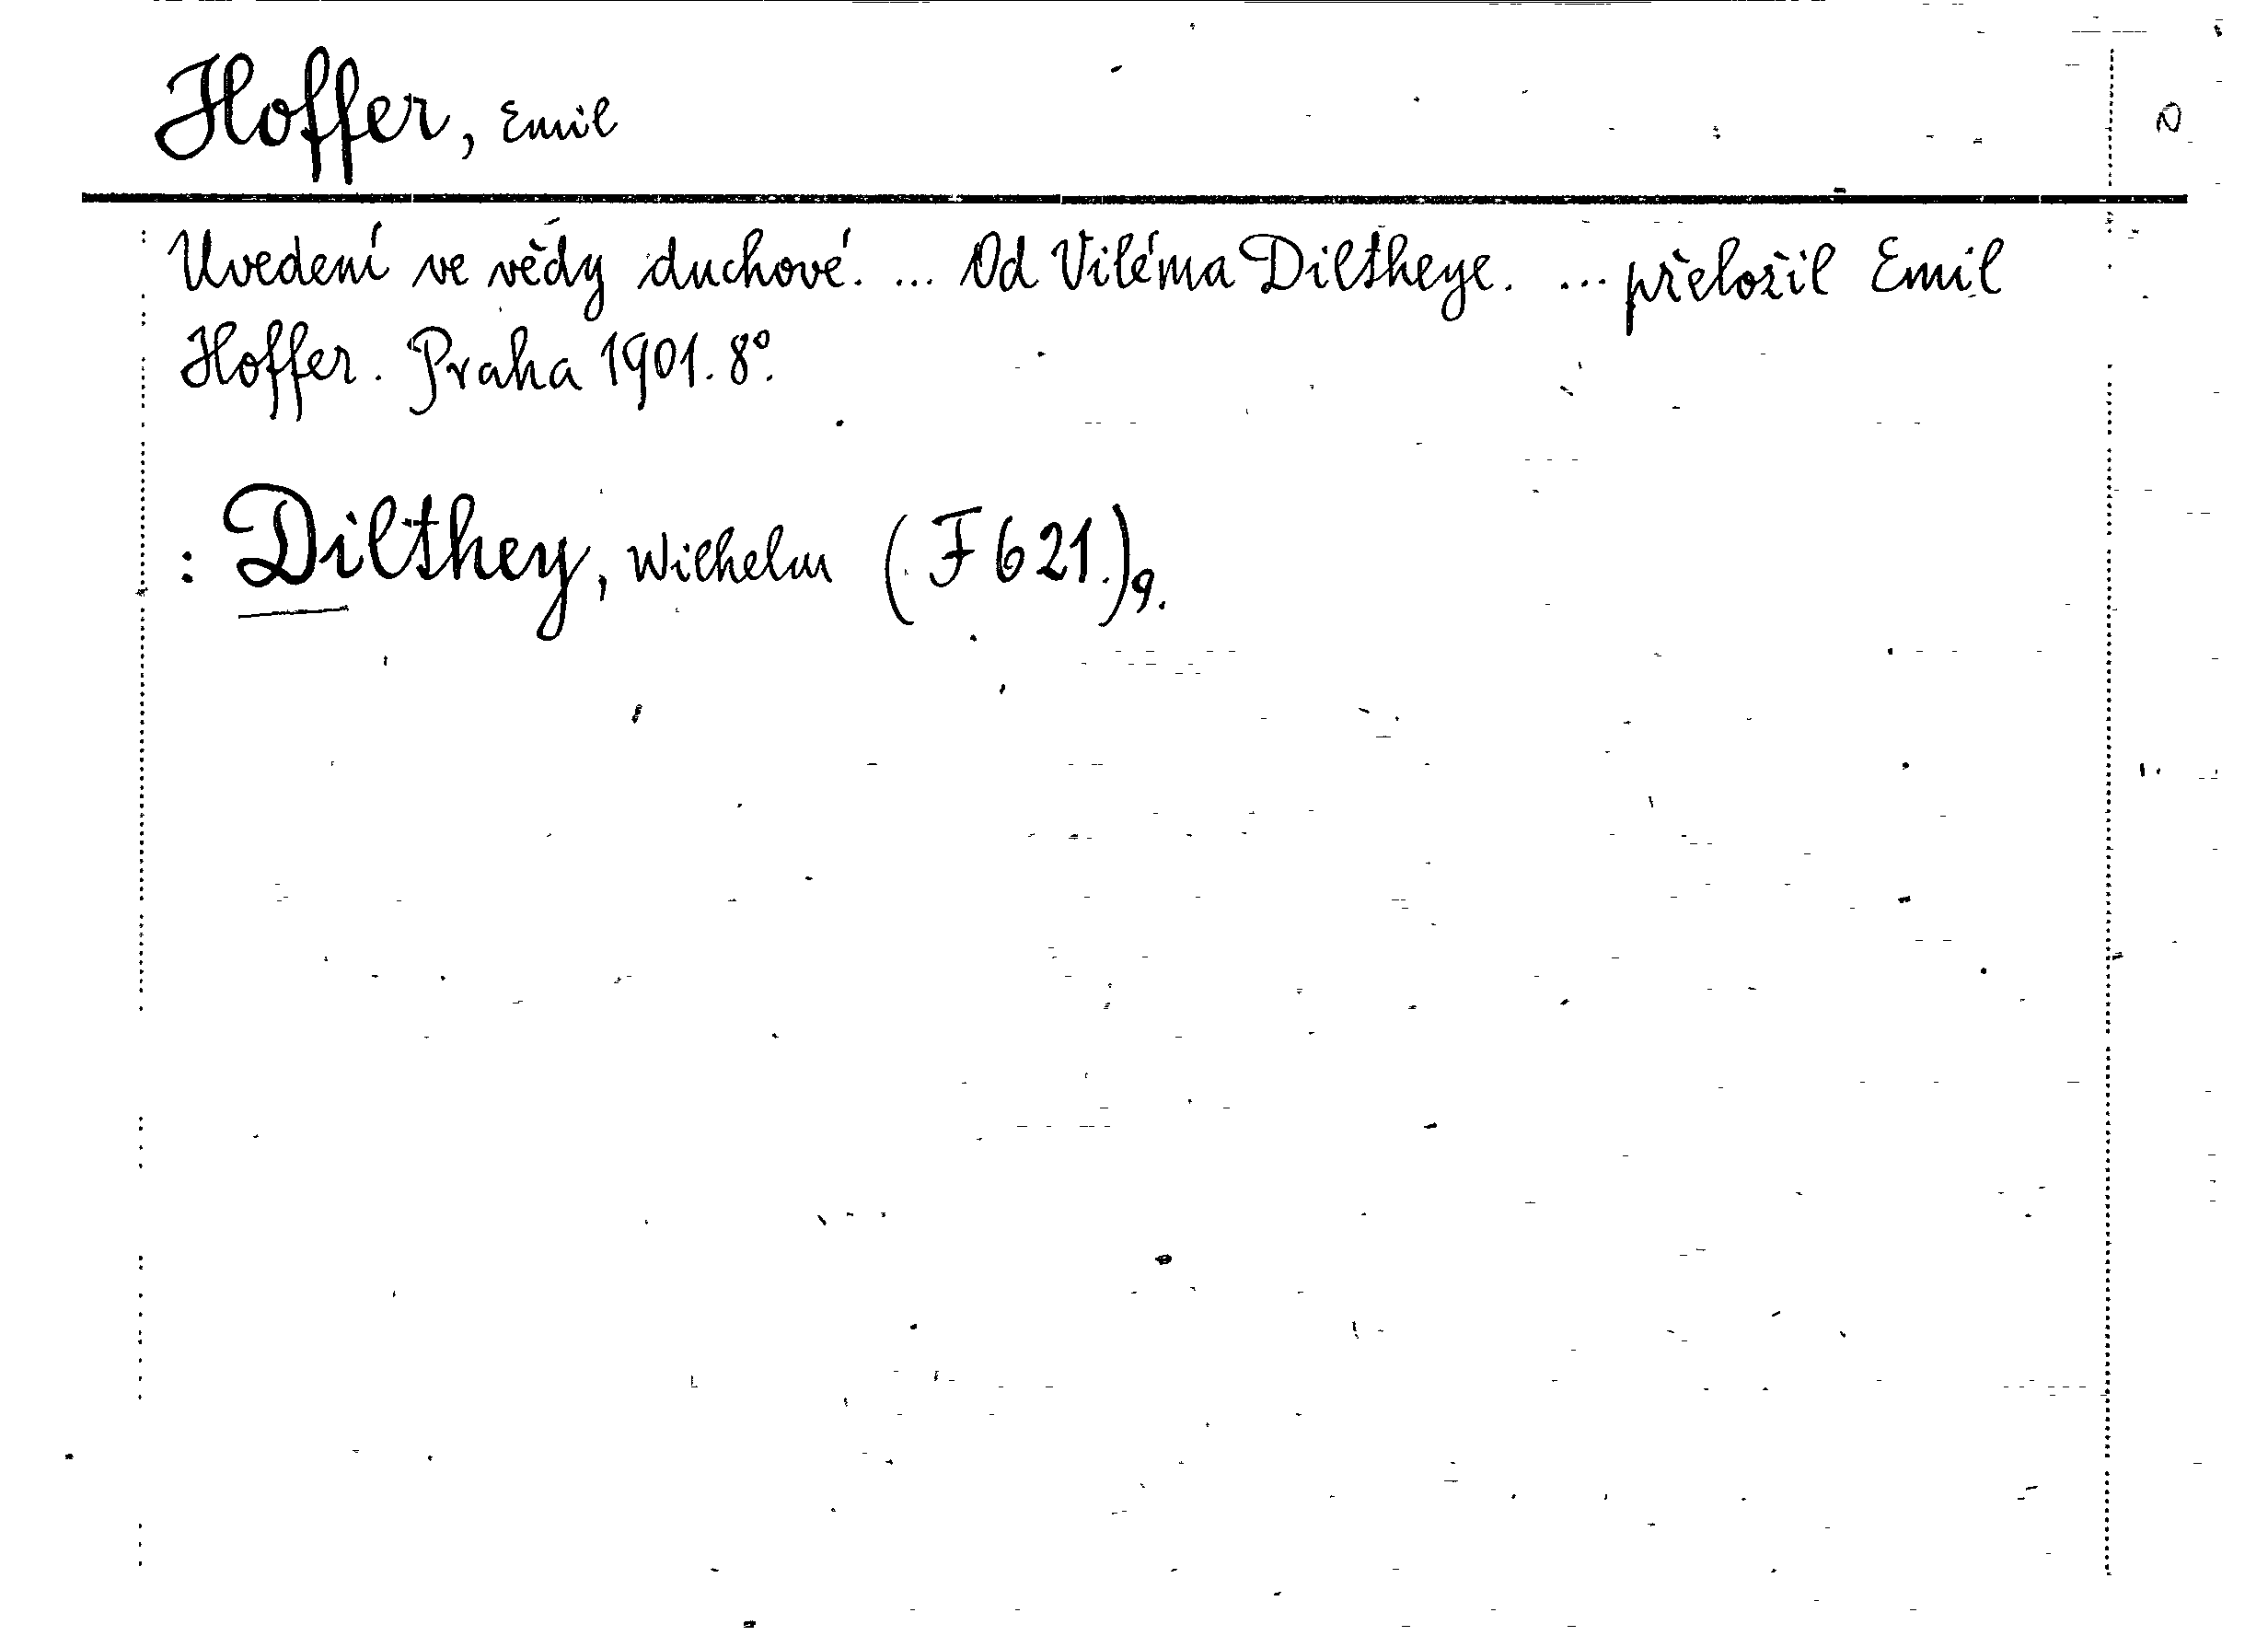 Hoffer, Emil
Uvedení ve vědy duchové. ... Od Viléma Diltheye. ... přeložil Emil
Hoffer. Praha 1901. 8º.
: Dilthey, Wilhelm (F 621.)9.